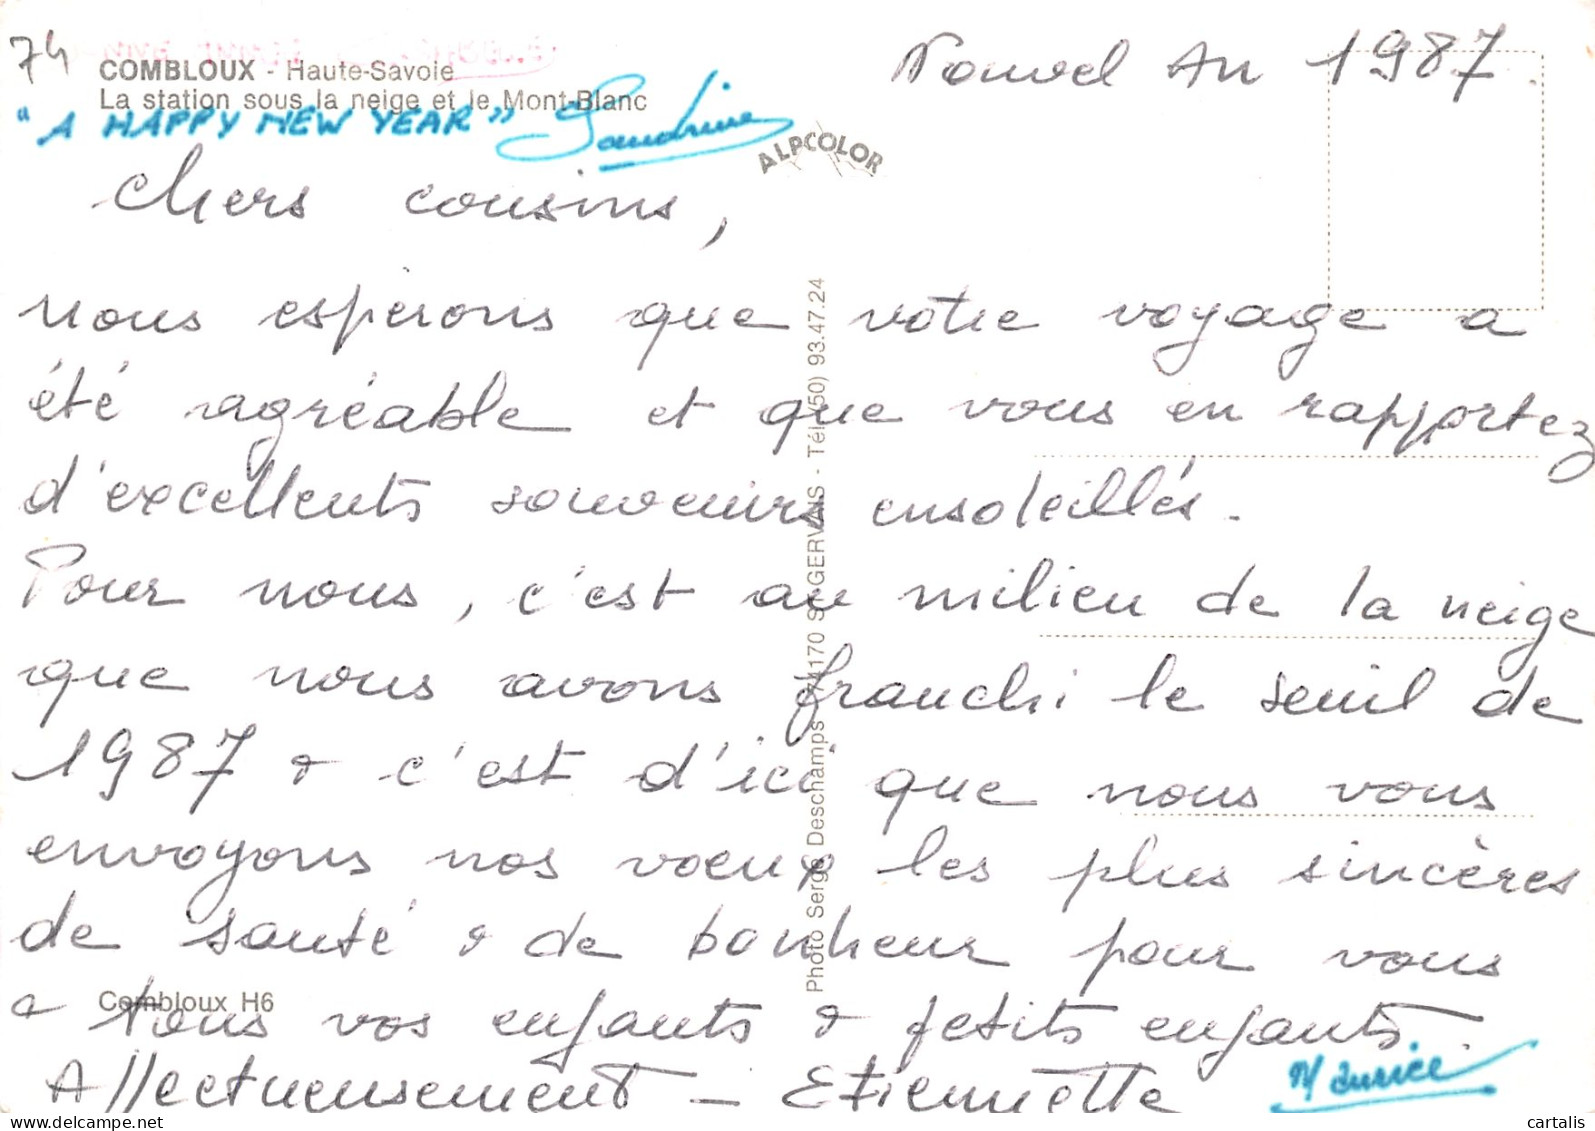 74
Nouvel An 1987
COMBLOUX - Haute-Savoie
La station sous la neige et le Mont-Blanc
"A HAPPY NEW YEAR" Sandrine
ALPCOLOR
Chers cousins,
nous espérons que votre voyage a
été agréable et que vous en rapportez
d'excellents souvenirs ensoleillés.
Pour nous, c'est au milieu de la neige
que nous avons franchi le seuil de
1987 & c'est d'ici que nous vous
envoyons nos voeux les plus sincères
de santé & de bonheur pour vous
& tous vos enfants & petits enfants.
Affectueusement - Etiennette Maurice
Combloux H6
Photo Serge Deschamps - 74170 St GERVAIS - Tél. (50) 93.47.24
cartalis
delcampe.net